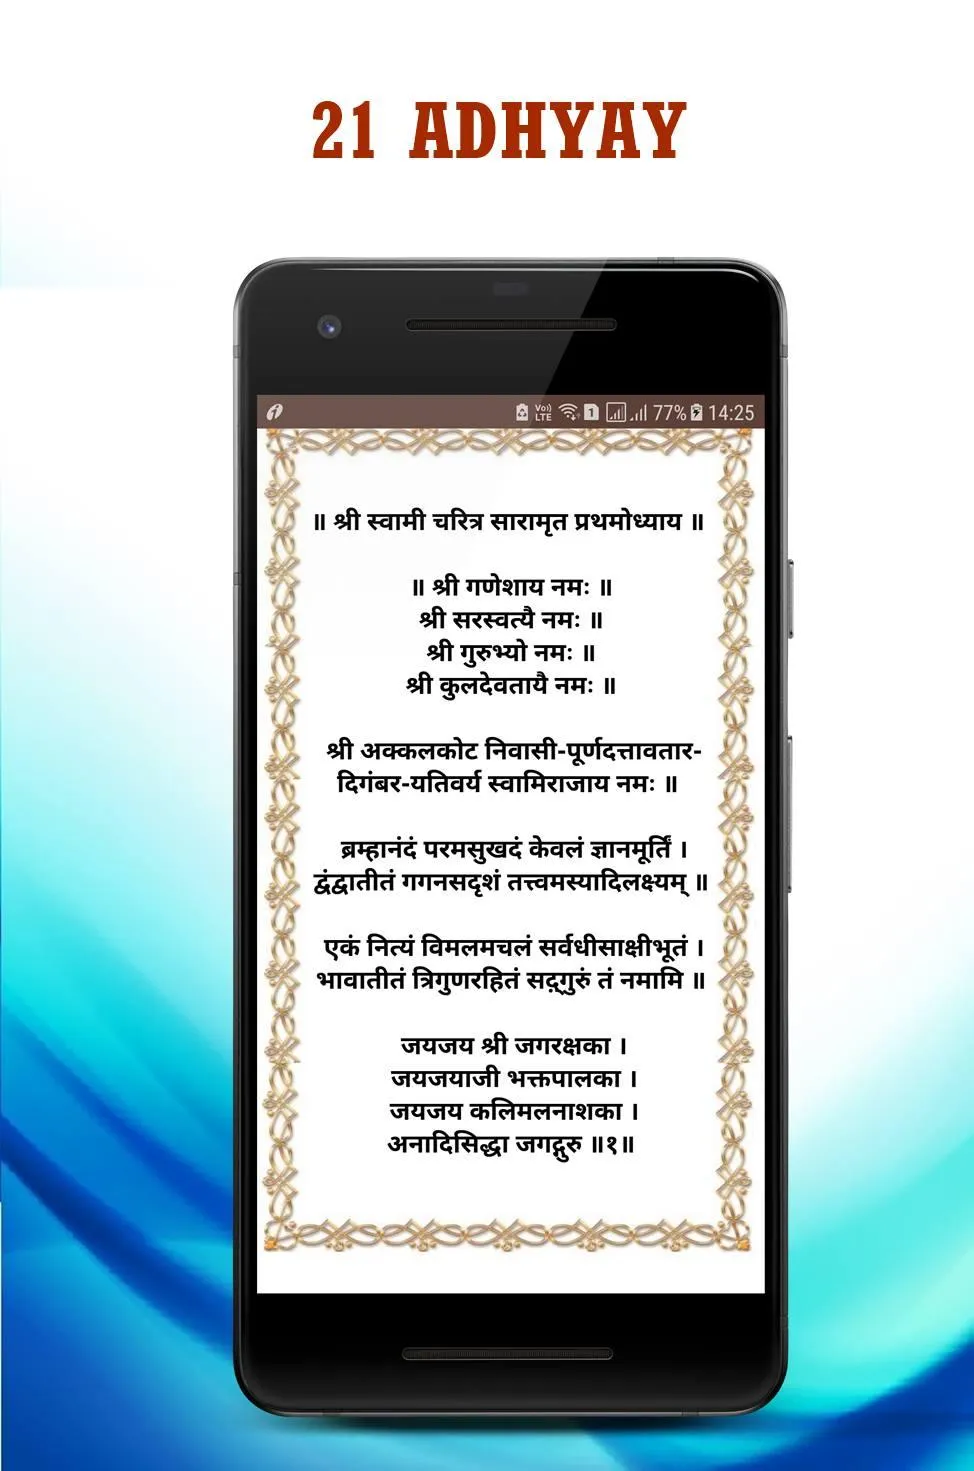 21 ADHYAY
Vo))
LTE
1
77%
14:25
॥ श्री स्वामी चरित्र सारामृत प्रथमोध्याय ॥
॥ श्री गणेशाय नमः ॥
श्री सरस्वत्यै नमः ॥
श्री गुरुभ्यो नमः ॥
श्री कुलदेवतायै नमः ॥
श्री अक्कलकोट निवासी-पूर्णदत्तावतार-
दिगंबर-यतिवर्य स्वामिराजाय नमः ॥
ब्रम्हानंदं परमसुखदं केवलं ज्ञानमूर्तिं ।
द्वंद्वातीतं गगनसदृशं तत्त्वमस्यादिलक्ष्यम् ॥
एकं नित्यं विमलमचलं सर्वधीसाक्षीभूतं ।
भावातीतं त्रिगुणरहितं सद्‍गुरुं तं नमामि ॥
जयजय श्री जगरक्षका ।
जयजयाजी भक्तपालका ।
जयजय कलिमलनाशका ।
अनादिसिद्धा जगद्गुरु ॥१॥